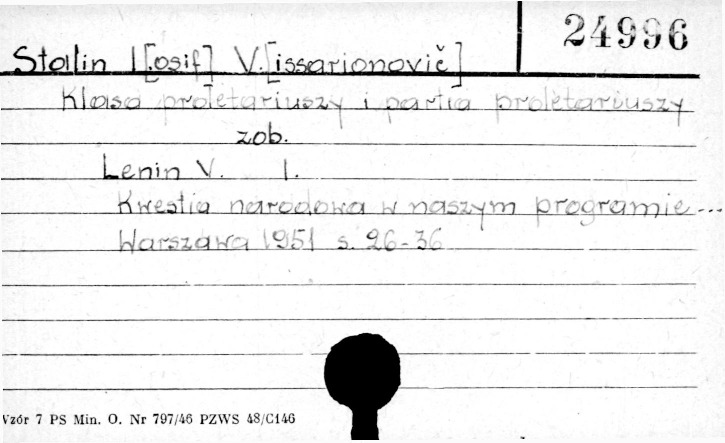 24996
Stalin I[.osif] V.[issarionovič]
Klasa proletariuszy i partia proletariuszy
zob.
Lenin V. I.
Kwestia narodowa w naszym programie...
Warszawa 1951 s. 26-36
Vzór 7 PS Min. O. Nr 797/46 PZWS 48/C146